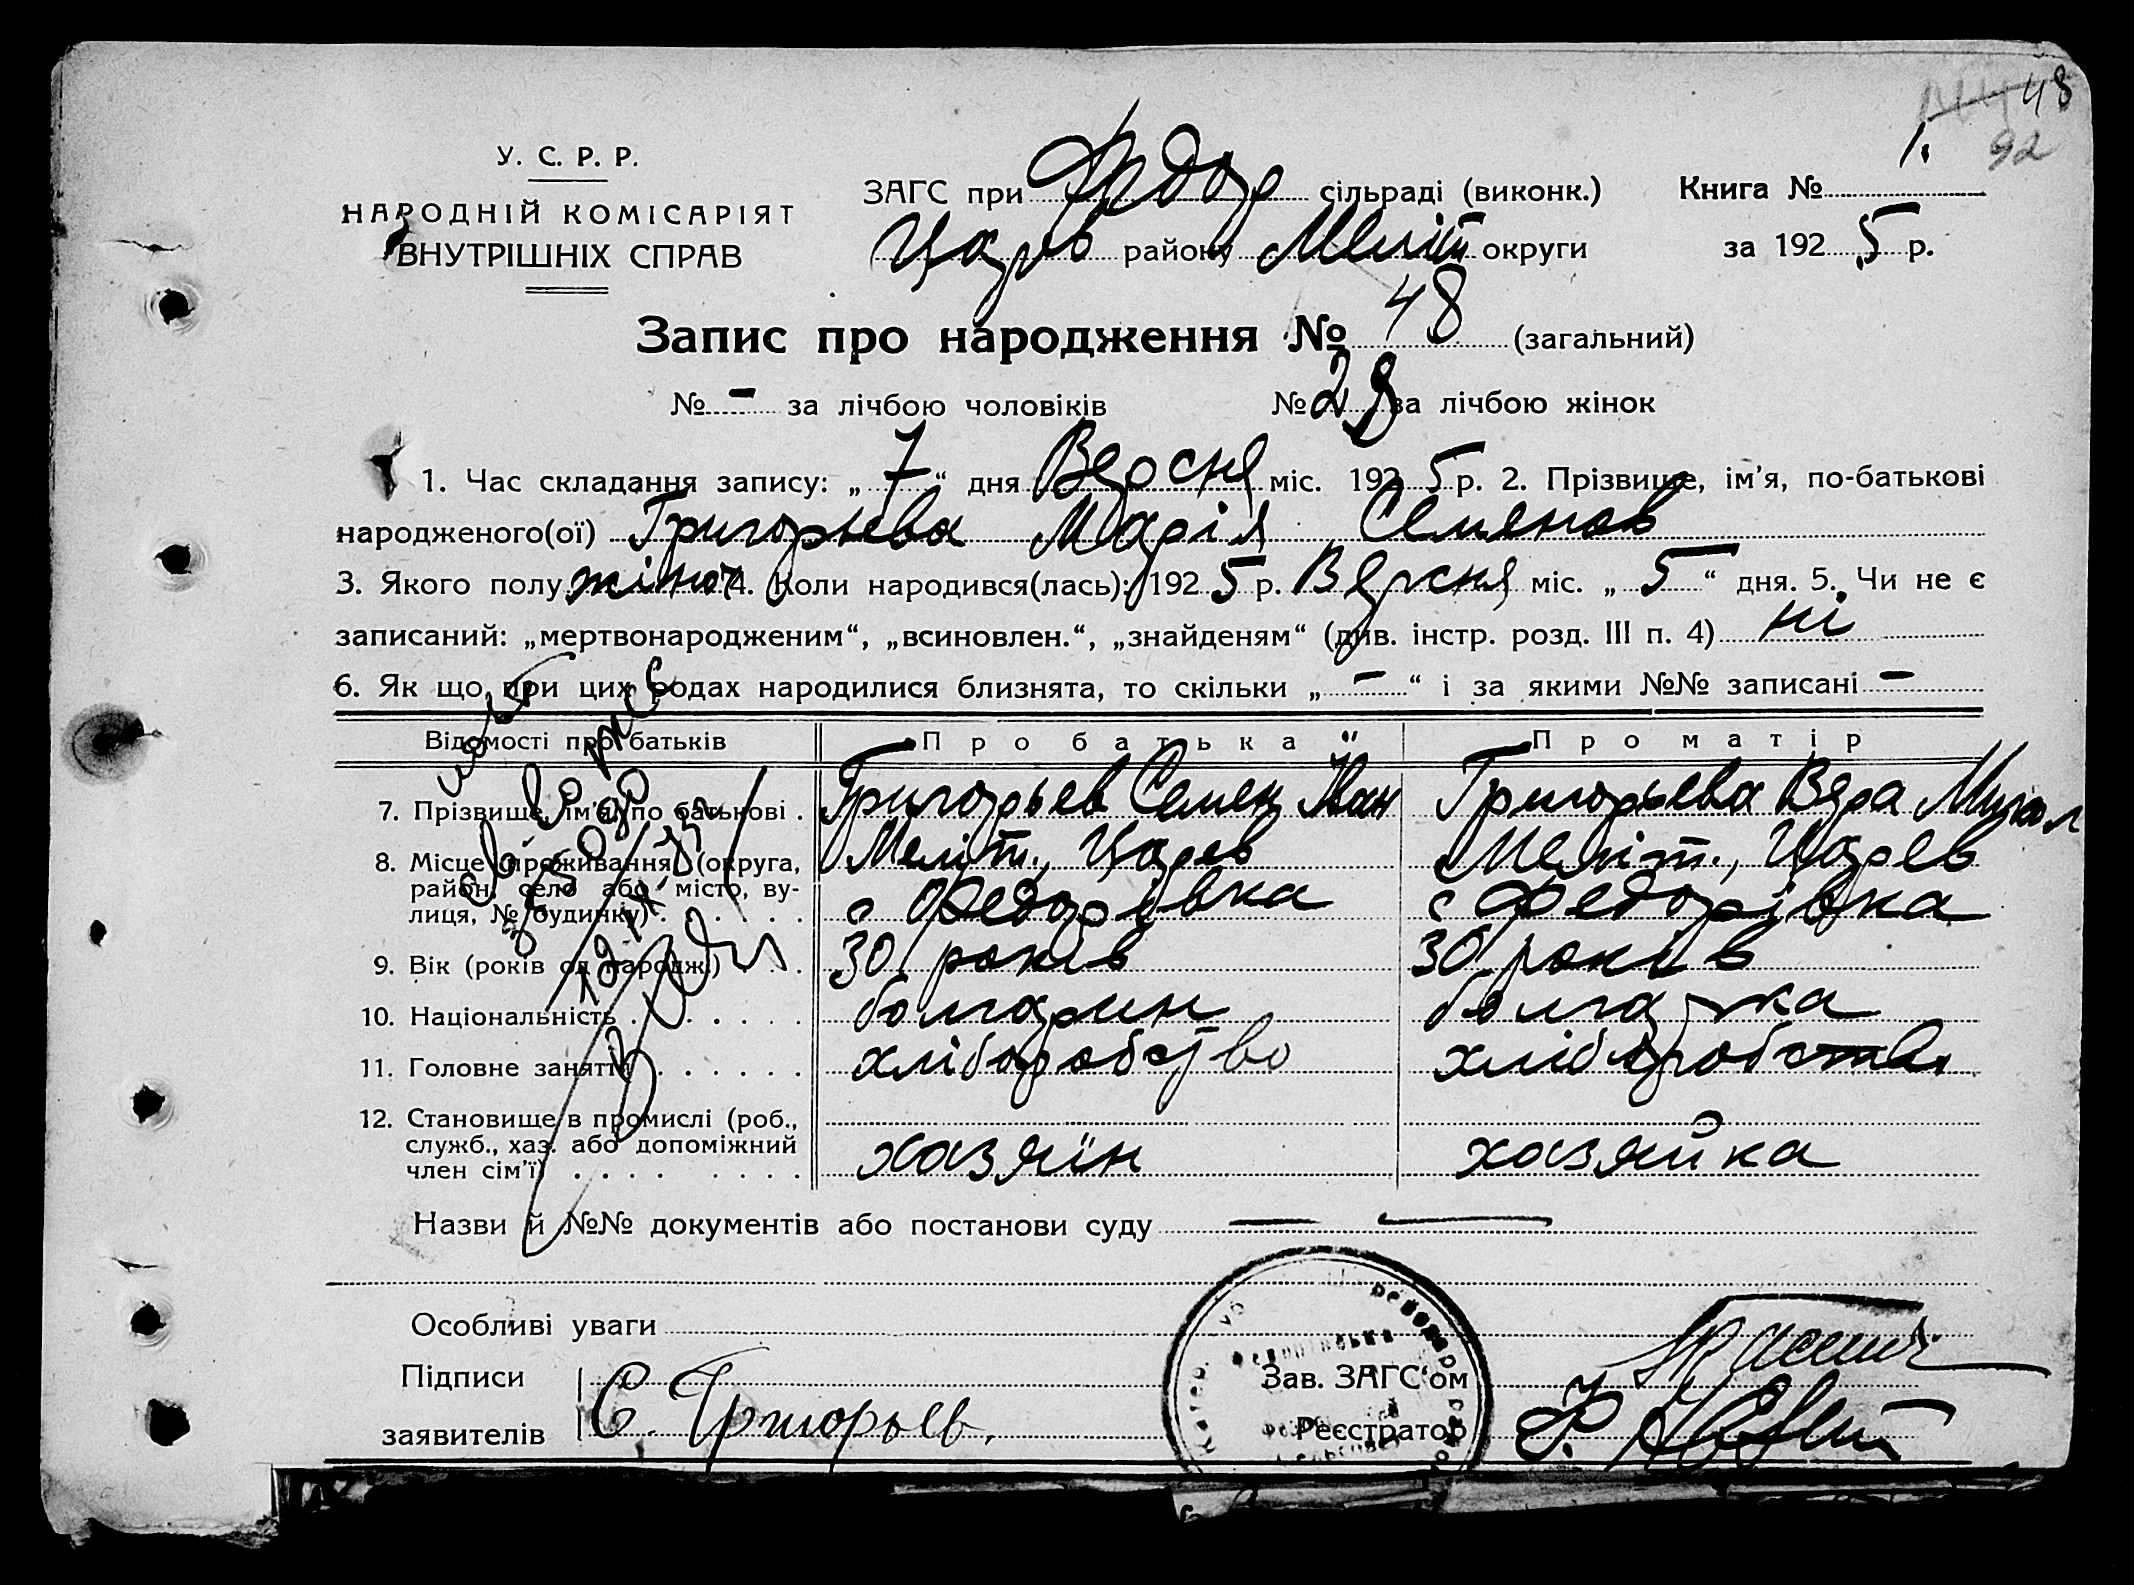 48
92
У. С. Р. Р.
НАРОДНІЙ КОМІСАРІЯТ
ВНУТРІШНІХ СПРАВ
ЗАГС при Федор сільраді (виконк.)
Царев району Меліт округи
Книга № 1.
за 1925 р.
Запис про народження № 48 (загальний)
№ – за лічбою чоловіків № 28 за лічбою жінок
1. Час складання запису: „7“ дня Вересня міс. 1925 р. 2. Прізвище, ім'я, по-батькові
народженого(ої) Григорьева Марія Семенов
3. Якого полу жіноч 4. Коли народився(лась): 1925 р. Вересня міс. „5“ дня. 5. Чи не є
записаний: „мертвонародженим“, „всиновлен.“, „знайденям“ (див. інстр. розд. III п. 4) ні
6. Як що, при цих родах народилися близнята, то скільки „–“ і за якими №№ записані –
Відомості про батьків Про батька Про матір
7. Прізвище, ім'я, по батькові . Григорьев Семен Иван Григорьева Вера Микол
8. Місце проживання (округа, Меліт., Царев Меліт., Царев
район, село або місто, ву-
лиця, № будинку) . с Федорівка с Федорівка
9. Вік (років од народж.) 30 років 30 років
10. Національність болгарин болгарка
11. Головне заняття хліборобство хліборобство
12. Становище в промислі (роб.,
служб., хаз. або допоміжний
член сім'ї) хазяїн хазяйка
Назви й №№ документів або постанови суду — —
Особливі уваги
Підписи
заявителів С. Григорьев.
Зав. ЗАГС'ом
Реєстратор